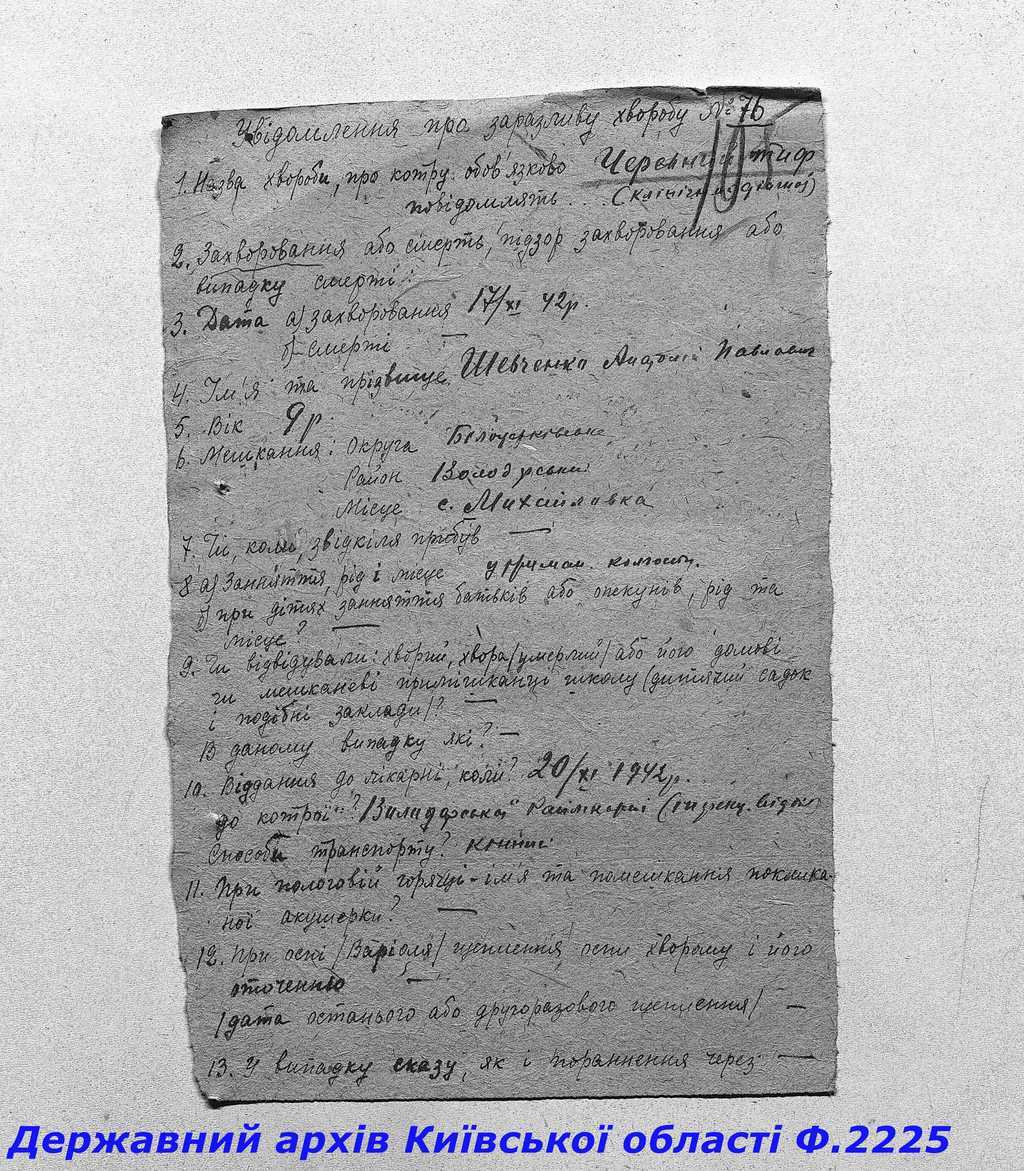 Увідомлення про заразливу хворобу № 76
1. Назва хвороби, про котру обов'язково Черевний тиф
повідомлять . . . (клінічн.
2. Захворовання або смерть, підзор захворовання або
випадку смерті:
3. Дата а) захворовання 17/XI 42р.
б) смерті —
4. Ім'я та прізвище Шевченко Анатолій Павлович
5. Вік 9 р.
6. Мешкання: Округа Білоцерківська
Район Володарський
Місце с. Михайлівка
7. Чи, коли, звідкіля прибув —
8 а) Заняття, рід і місце утриман.
б) при дітях заняття батьків або опекунів, рід та
місце? —
9. Чи відвідували: хворий, хвора /умерлий/ або його домові
чи мешканеві примішканці школу (дитячий садок
і подібні заклади/? —
В даному випадку які? —
10. Віддання до лікарні, коли? 20/XI 1942р.
до котрої? Володарської
Способи транспорту? кінний
11. При пологовій горячці - ім'я та помешкання поклика-
ної акушерки? —
12. При оспі /Варіоля/ щеплення оспи хворому і його
оточенню —
/дата останього або другоразового щеплення/ —
13. У випадку сказу, як і пораннення через —
Державний архів Київської області Ф.2225